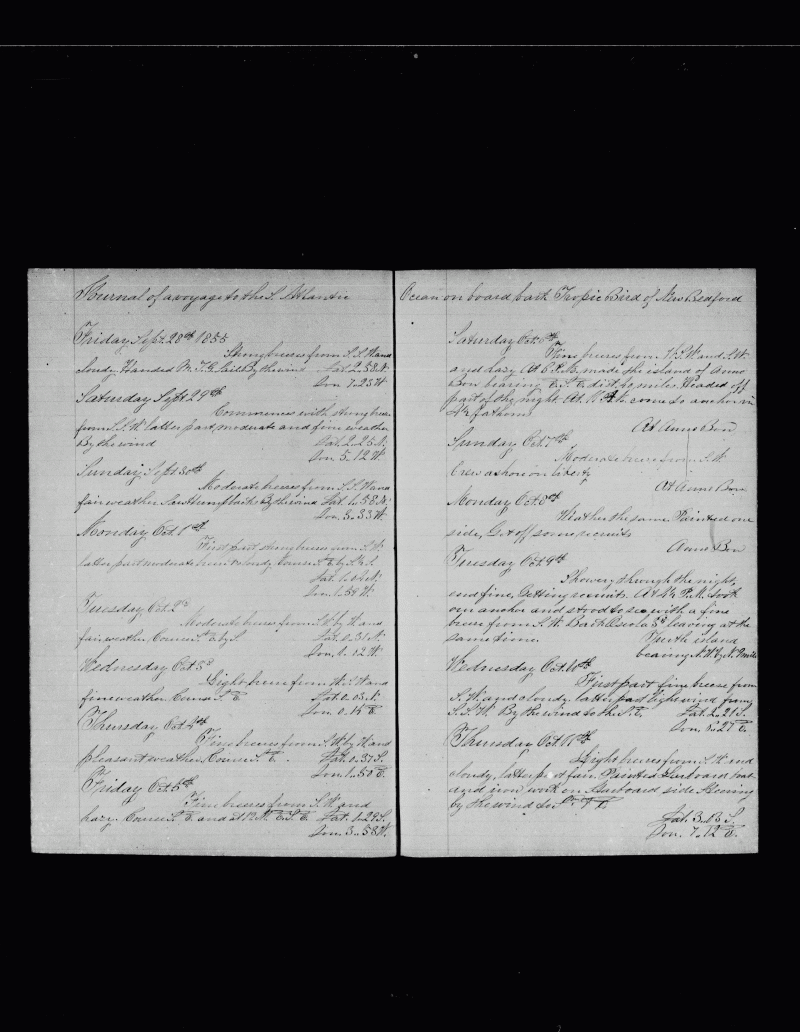 Journal of a voyage to the S. Atlantic
Friday Sept 28th 1855
Strong breeses from S.S.W. and
cloudy. Handed M. T. G. Sail By the wind Lat 2..58 N.
Lon 7..23 W.
Saturday Sept 29th
Commences with strong breeses
from S.S.W. latter part, moderate and fine weather
By the wind Lat. 2..25 N.
Lon. 5..12 W.
Sunday Sept 30th
Moderate breeses from S.S.W. and
fair weather Saw Humpbacks By the wind Lat. 1..58 N.
Lon. 3..33 W.
Monday Oct 1st
First part strong breeses from S.W.
latter part moderate breeses cloudy Course S.E. by S.
Lat. 1..
Lon. 1..58 W.
Tuesday Oct 2d
Moderate breeses from S.W. by W. and
fair weather Course S.E. by S. Lat. 0..31 N.
Lon. 1..12 W.
Wednesday Oct 3d
Light breeses from W.S.W. and
fine weather. Course S.E. Lat. 0..03 N.
Lon. 0..15 E.
Thursday Oct 4th
Fine breeses from S.W. by W. and
pleasant weather, Course S.E. Lat. 0..37 S.
Lon. 1..50 E.
Friday Oct 5th
Fine breeses from S.W. and
hazy. Course S.E. and at 12 M. E.S.E. Lat. 1..29 S.
Lon. 3..58
Ocean on board bark Tropic Bird of New Bedford
Saturday Oct 6th
Fine breeses from W.S.W. and S.W.
and hazy At 6 A.M. made the island of Anno
Bon bearing E.S.E. dist miles. Headed off
part of the night. At 11 A.M. come to anchor in
fathoms.
At Anno Bon
Sunday Oct 7th
Moderate breeses from S.W.
Crew ashore on liberty
At Anno Bon
Monday Oct 8th
Weather the same Painted one
side, Got off some recruits
Anno Bon
Tuesday Oct 9th
Showery through the night,
and fine, Getting recruits. At P.M. took
our anchor and stood to sea with a fine
breese from S.W. Bark Osceola 3d leaving at the
same time. island
bearing N.W. by N. miles
Wednesday Oct. 10th
First part fine breese from
S.W. and cloudy, latter part light wind from
S.S.W. By the wind to the S.E. Lat. 2..21 S.
Lon. 6..27 E.
Thursday Oct. 11th
Light breeses from S.W. and
cloudy, latter part fair. Painted Larboard boat
and iron work on Starboard side Steering
by the wind
Lat. 3..13 S.
Lon. 7..12 E.